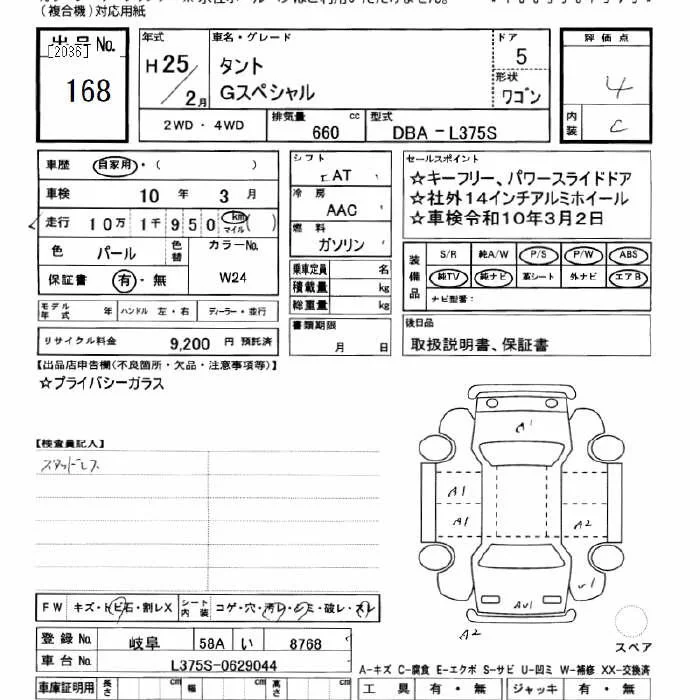 (複合機)対応用紙
出品No.
[2036]
168
年式
H25/2月
車名・グレード
タント
Gスペシャル
ドア
5
形状
ワゴン
2WD・4WD
排気量 cc
660
型式
DBA-L375S
評価点
4
内装
C
車歴 自家用・( )
車検 10年 3月
走行 10万1千950 km マイル ( )
色 パール 色替 カラーNo.
保証書 有・無 W24
モデル年式 年 ハンドル 左・右 ディーラー・並行
リサイクル料金 9,200 円 預託済
シフト
AT
冷房
AAC
燃料
ガソリン
乗車定員 名
積載量 kg
総重量 kg
書類期限
月 日
セールスポイント
☆キーフリー、パワースライドドア
☆社外14インチアルミホイール
☆車検令和10年3月2日
装備品
S/R 純A/W P/S P/W ABS
純TV 純ナビ 革シート 外ナビ エアB
ナビ型番:
後日品
取扱説明書、保証書
【出品店申告欄(不良箇所・欠品・注意事項等)】
☆プライバシーガラス
【検査員記入】
スタッドレス
A1
A1
A1
A2
AU1
A2
スペア
FW キズ・トビ石・割レX シート内装 コゲ・穴・汚レ・シミ・破レ・スレ
登録No. 岐阜 58A い 8768
車台No. L375S-0629044
車庫証明用 長さ cm 幅 cm 高さ cm
A-キズ C-腐食 E-エクボ S-サビ U-凹ミ W-補修 XX-交換済
工具 有・無 ジャッキ 有・無